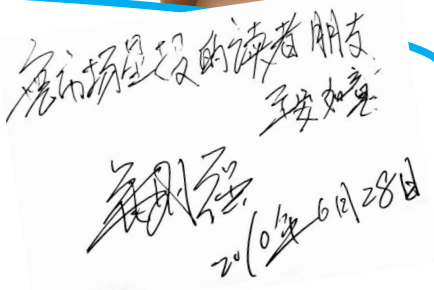 市场星报的读者朋友
平安如意
2010年6月28日